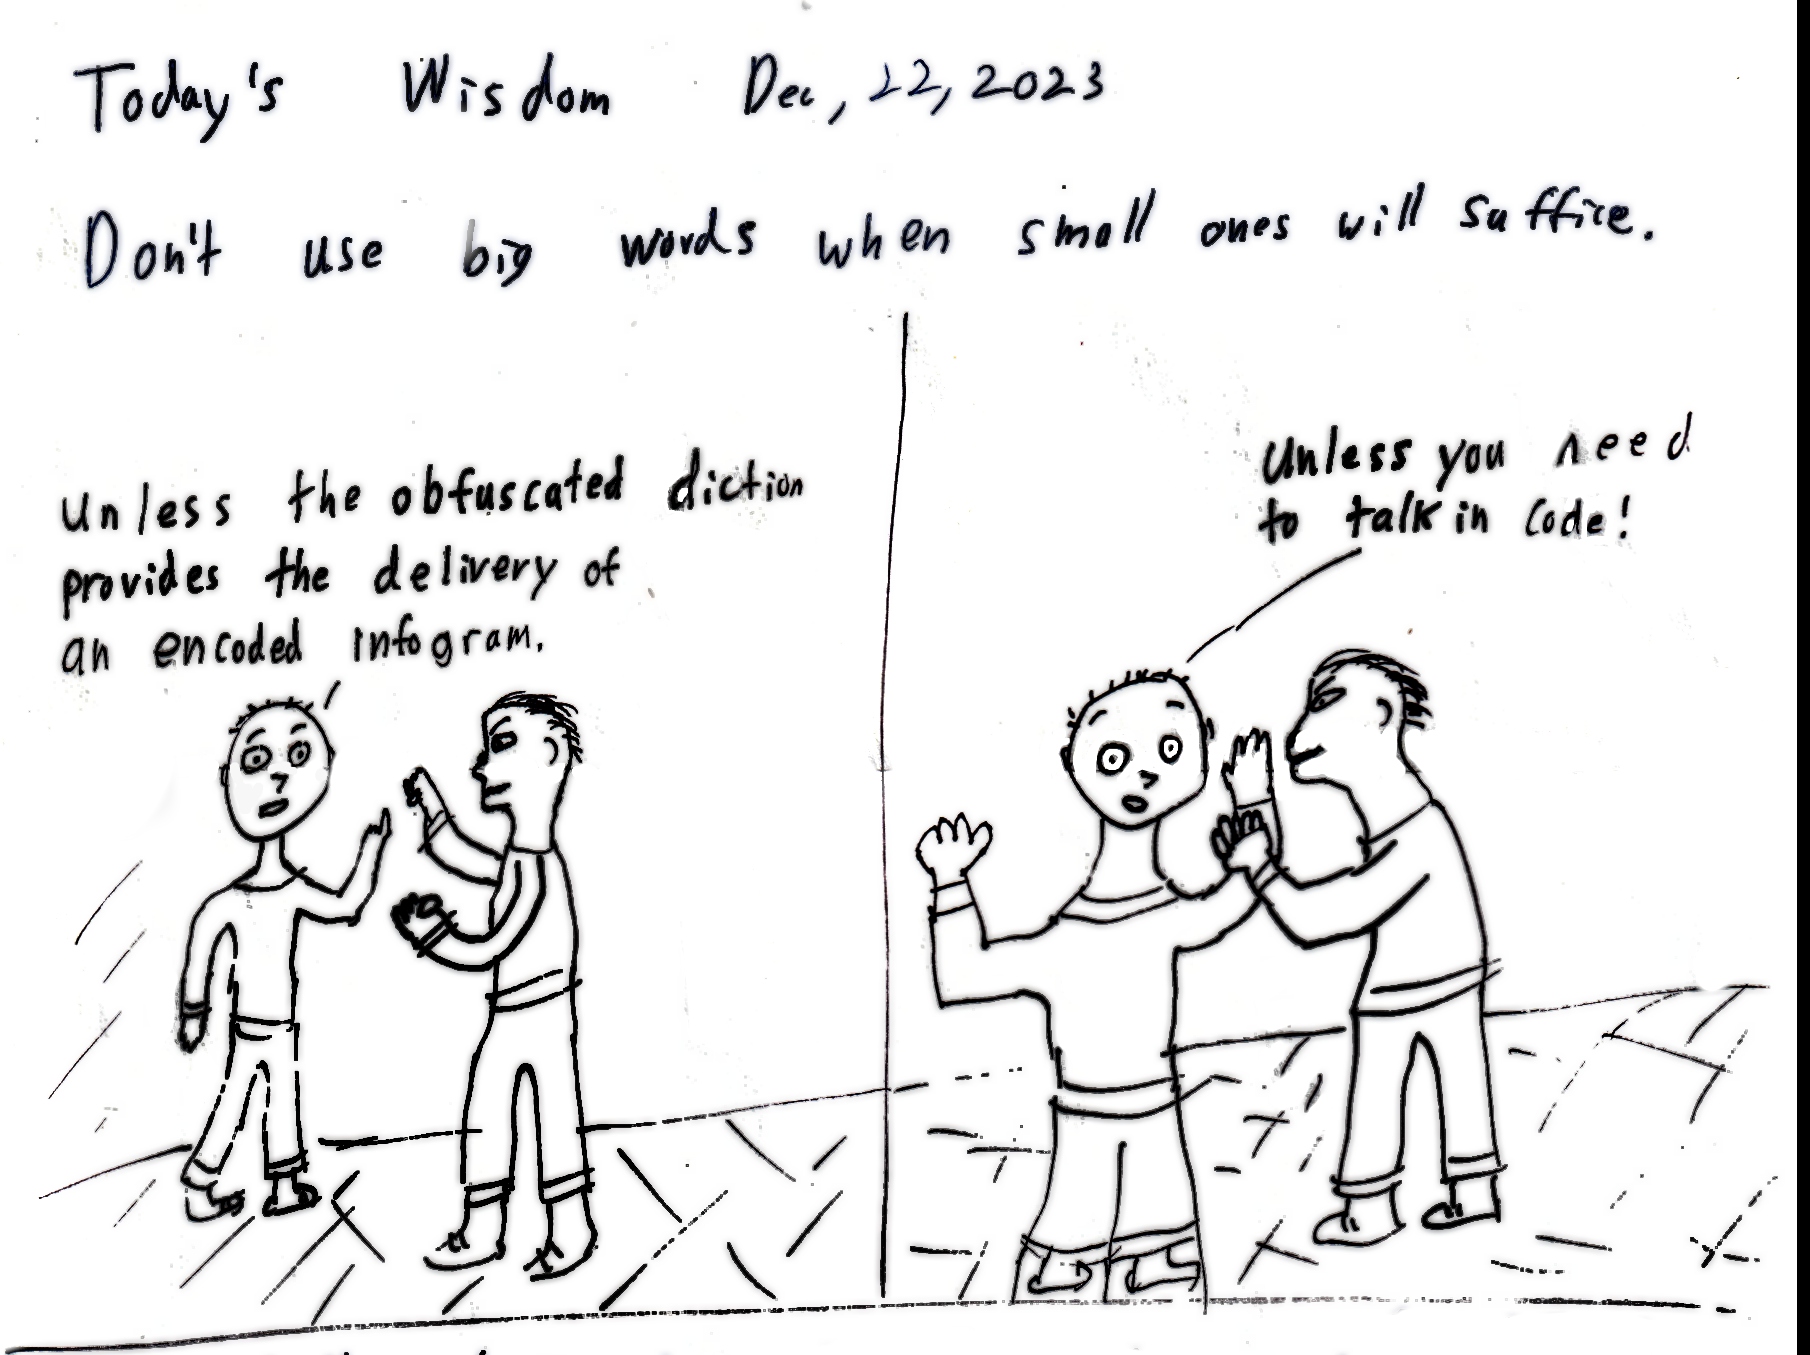 Today's Wisdom Dec, 22, 2023
Don't use big words when small ones will suffice.
Unless the obfuscated diction
provides the delivery of
an encoded infogram.
Unless you need
to talk in code!